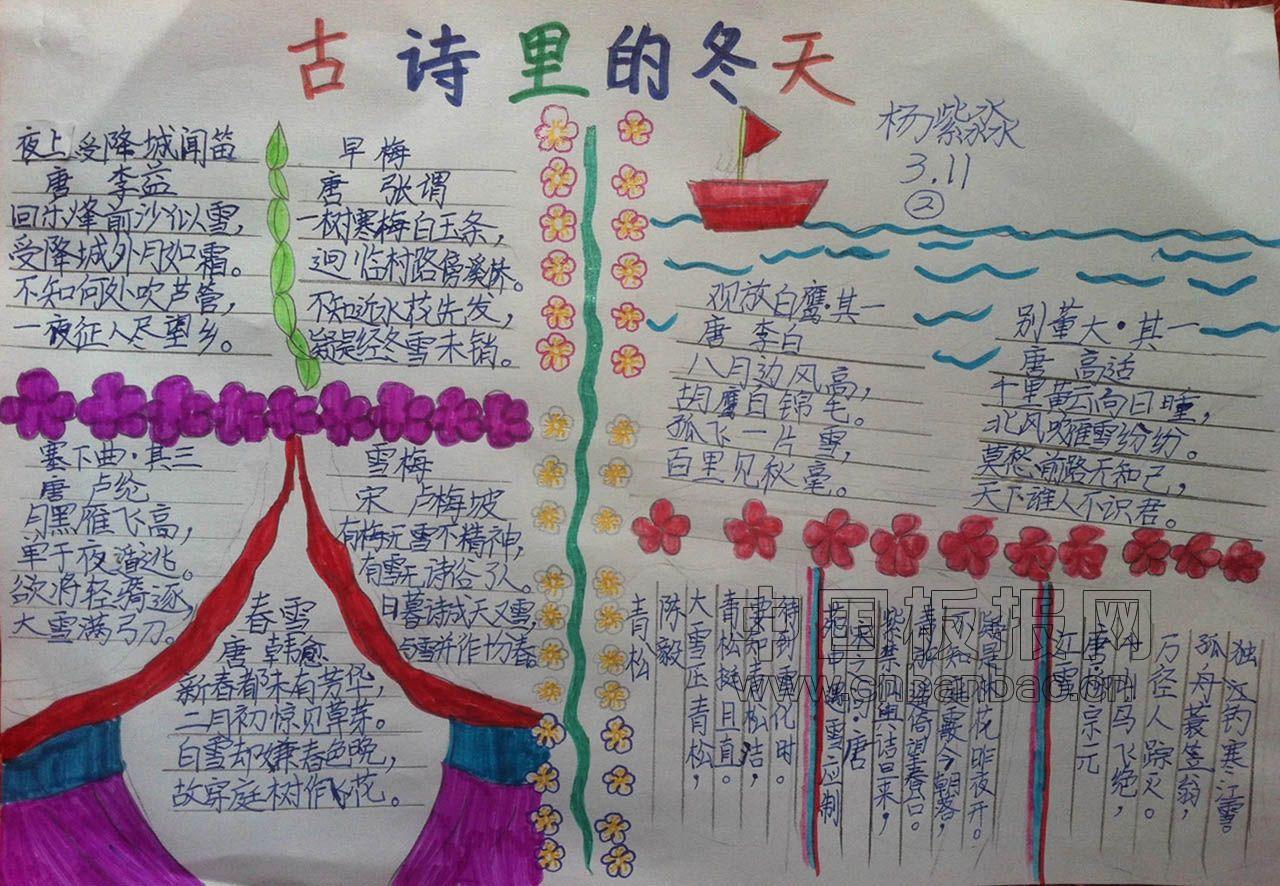 古诗里的冬天
杨紫淼
3.11
②
夜上受降城闻笛
唐 李益
回乐烽前沙似雪，
受降城外月如霜。
不知何处吹芦管，
一夜征人尽望乡。
早梅
唐 张谓
一树寒梅白玉条，
迥临村路傍溪桥。
不知近水花先发，
疑是经冬雪未销。
观放白鹰·其一
唐 李白
八月边风高，
胡鹰白锦毛。
孤飞一片雪，
百里见秋毫。
别董大·其一
唐 高适
千里黄云白日曛，
北风吹雁雪纷纷。
莫愁前路无知己，
天下谁人不识君。
塞下曲·其三
唐 卢纶
月黑雁飞高，
单于夜遁逃。
欲将轻骑逐，
大雪满弓刀。
雪梅
宋 卢梅坡
有梅无雪不精神，
有雪无诗俗了人。
日暮诗成天又雪，
与雪并作十分春。
春雪
唐 韩愈
新春都未有芳华，
二月初惊见草芽。
白雪却嫌春色晚，
故穿庭树作飞花。
青松
陈毅
大雪压青松，
青松挺且直。
要知松高洁，
待到雪化时。
苑中遇雪应制
宋之问·唐
紫禁仙舆诘旦来，
青旂遥倚望春台。
不知庭霰今朝落，
疑是林花昨夜开。
江雪
唐 柳宗元
千山鸟飞绝，
万径人踪灭。
孤舟蓑笠翁，
独江钓寒江雪。
中国板报网
www.cnbanbao.cn